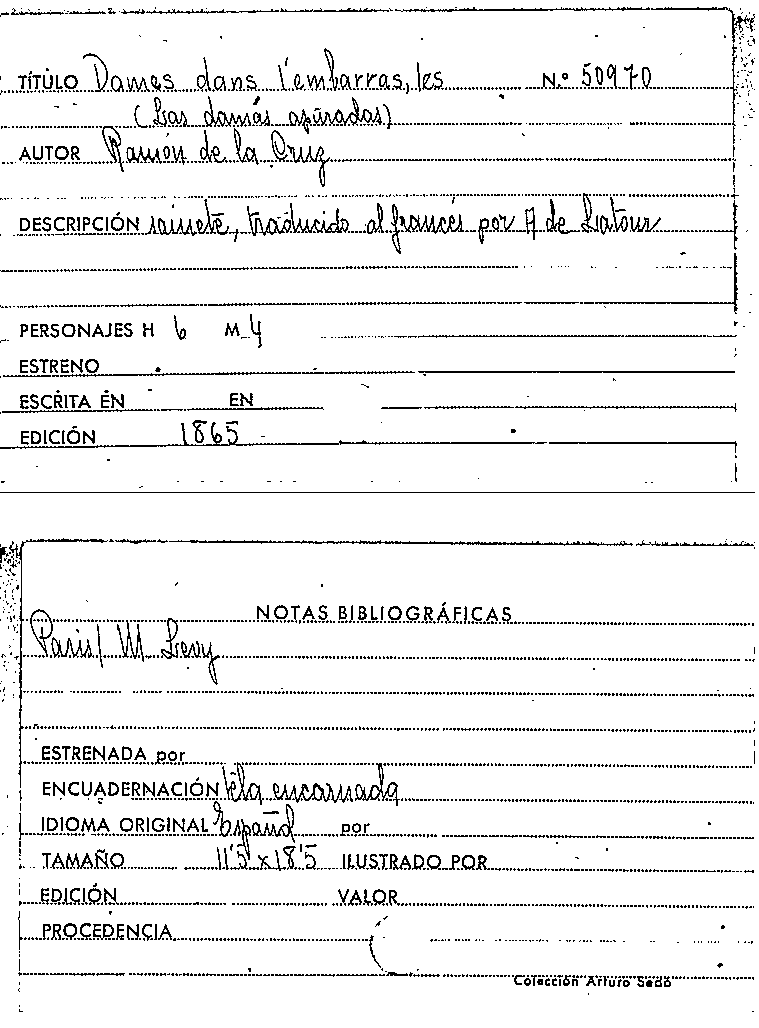 TÍTULO Dames dans l'embarras, les N.º 50970
(Las damas apuradas)
AUTOR Ramón de la Cruz
DESCRIPCIÓN sainete, traducido al francés por A de Latour
PERSONAJES H 6 M 4
ESTRENO
ESCRITA EN EN
EDICIÓN 1865
NOTAS BIBLIOGRÁFICAS
Paris/ M Levy
ESTRENADA por
ENCUADERNACIÓN tela encarnada
IDIOMA ORIGINAL Español por
TAMAÑO 11'5 x 18'5 ILUSTRADO POR
EDICIÓN VALOR
PROCEDENCIA
Colección Arturo Sedó